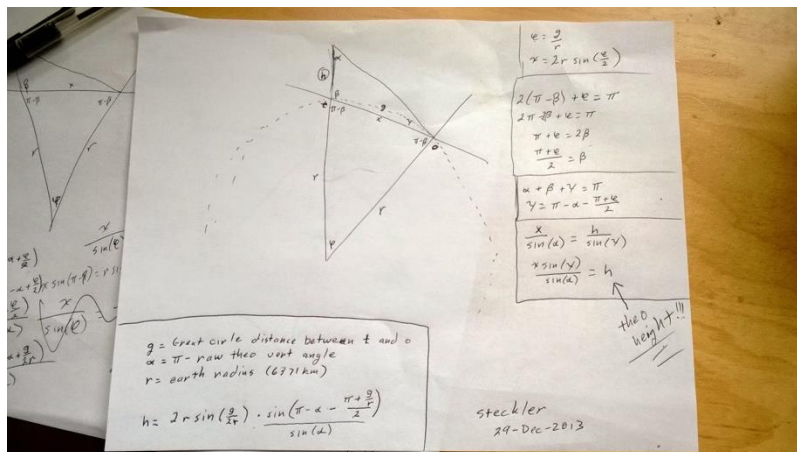 α
h
β
t
π-β
g
γ
x
π-β
o
r
r
φ
φ = g/r
x = 2r sin(φ/2)
2(π-β) + φ = π
2π-2β + φ = π
π + φ = 2β
(π+φ)/2 = β
α + β + γ = π
γ = π - α - (π+φ)/2
x/sin(α) = h/sin(γ)
x sin(γ)/sin(α) = h
theo
height!!!
g = Great circle distance between t and o
α = π - raw theo vert angle
r = earth radius (6371km)
h = 2r sin(g/2r) · sin(π-α - (π + g/r)/2)/sin(α)
steckler
29-Dec-2013
β
x
π-β
π-β
r
r
φ
x/sin(φ)
x/sin(φ)